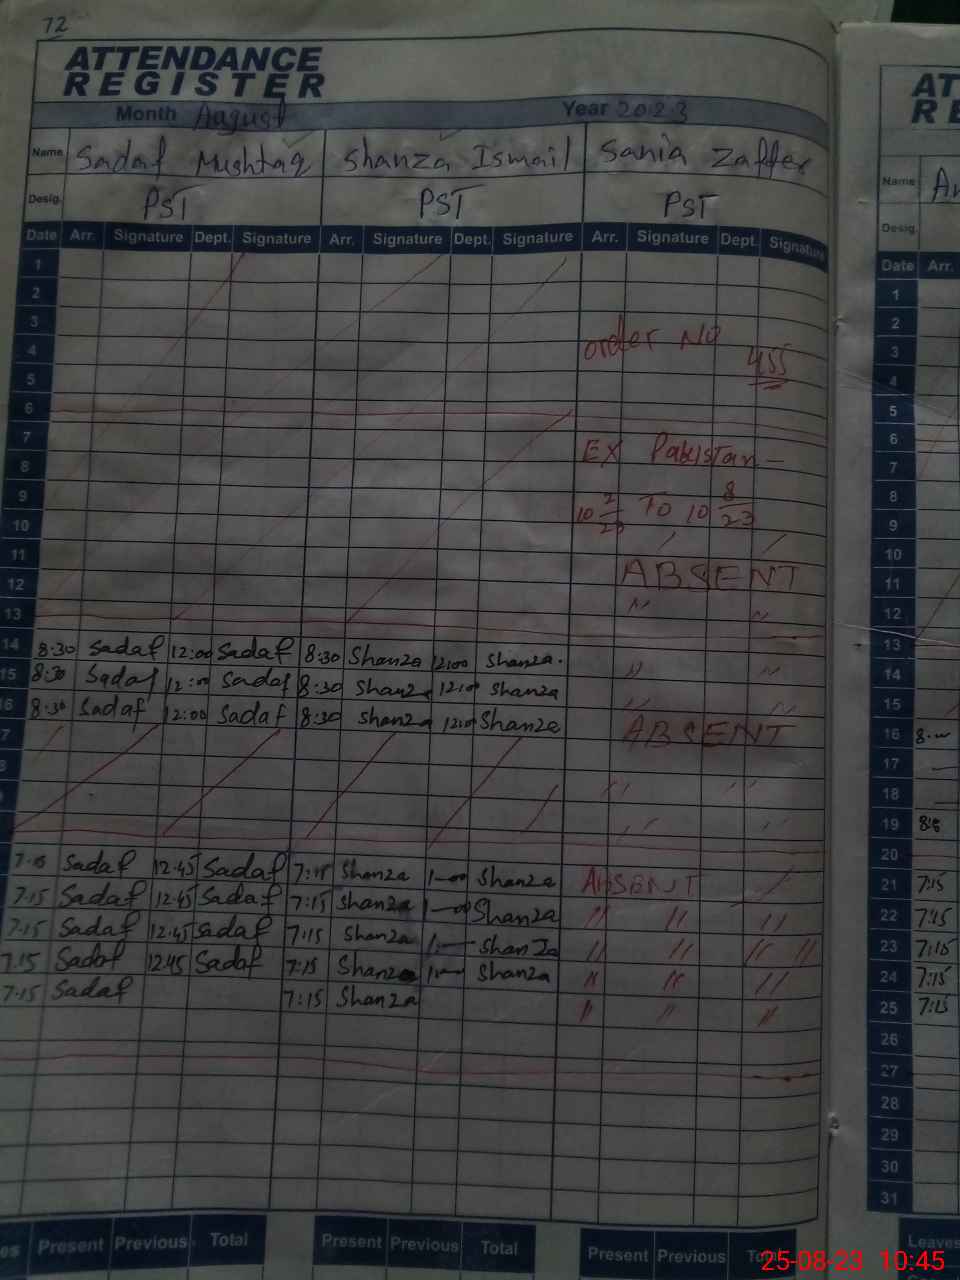 72
ATTENDANCE
REGISTER
Month August Year 2023
Name Sadaf Mushtaq Shanza Ismail Sania Zaffer
Desig. PST PST PST
Date Arr. Signature Dept. Signature Arr. Signature Dept. Signature Arr. Signature Dept. Signature
1
2
3
4 order No 455
5
6
7 EX Pakistan -
8
9 10 2/23 To 10 8/23
10
11 ABSENT
12 " "
13
14 8:30 Sadaf 12:00 Sadaf 8:30 Shanza 12:00 Shanza. " "
15 8:30 Sadaf 12:00 Sadaf 8:30 Shanza 12:00 Shanza " "
6 8:30 Sadaf 12:00 Sadaf 8:30 Shanza 12:00 Shanza ABSENT
7
8 " "
" "
Sadaf 12:45 Sadaf 7:15 Shanza 1-00 Shanza ABSENT
7:15 Sadaf 12:45 Sadaf 7:15 Shanza 1-00 Shanza " " "
7:15 Sadaf 12:45 Sadaf 7:15 Shanza Shanza " " " "
7:15 Sadaf 12:45 Sadaf 7:15 Shanza Shanza " " "
7:15 Sadaf 7:15 Shanza " " "
es Present Previous Total Present Previous Total Present Previous Total
AT
RE
Name
Desig.
Date Arr.
1
2
3
4
5
6
7
8
9
10
11
12
13
14
15
16
17
18
19
20
21 7:15
22 7:15
23 7:15
24 7:15
25 7:15
26
27
28
29
30
31
Leaves
25-08-23 10:45